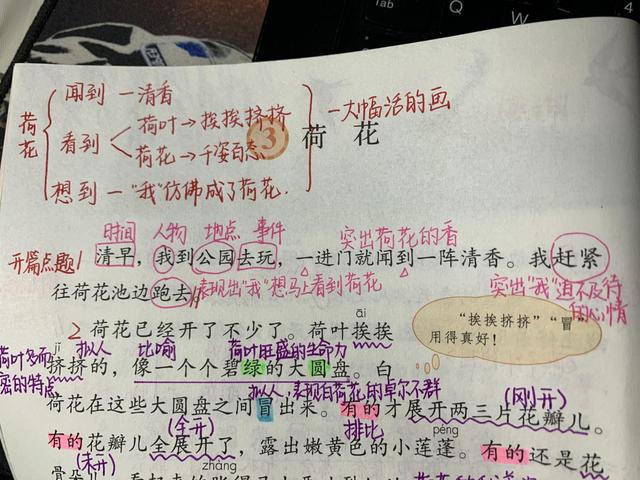 Tab
Q
W
4
荷花
闻到 一清香
看到
荷叶→挨挨挤挤
荷花→千姿百态
想到 一"我"仿佛成了荷花.
一大幅活的画
3 荷 花
时间 人物 地点 事件 突出荷花的香
开篇点题
清早，我到公园去玩，一进门就闻到一阵清香。我赶紧
往荷花池边跑去
表现出"我"想马上看到荷花
突出"我"迫不及待的心情
āi
2 荷花已经开了不少了。荷叶挨挨
"挨挨挤挤""冒"
用得真好！
荷叶多而密的特点
jǐ
拟人 比喻 荷叶旺盛的生命力
挤挤的，像一个个碧绿的大圆盘。白
拟人，表现白荷花的卓尔不群
(刚开)
荷花在这些大圆盘之间冒出来。有的才展开两三片花瓣儿。
(全开) 排比
péng
有的花瓣儿全展开了，露出嫩黄色的小莲蓬。有的还是花
(未开)
zhàng
骨朵儿